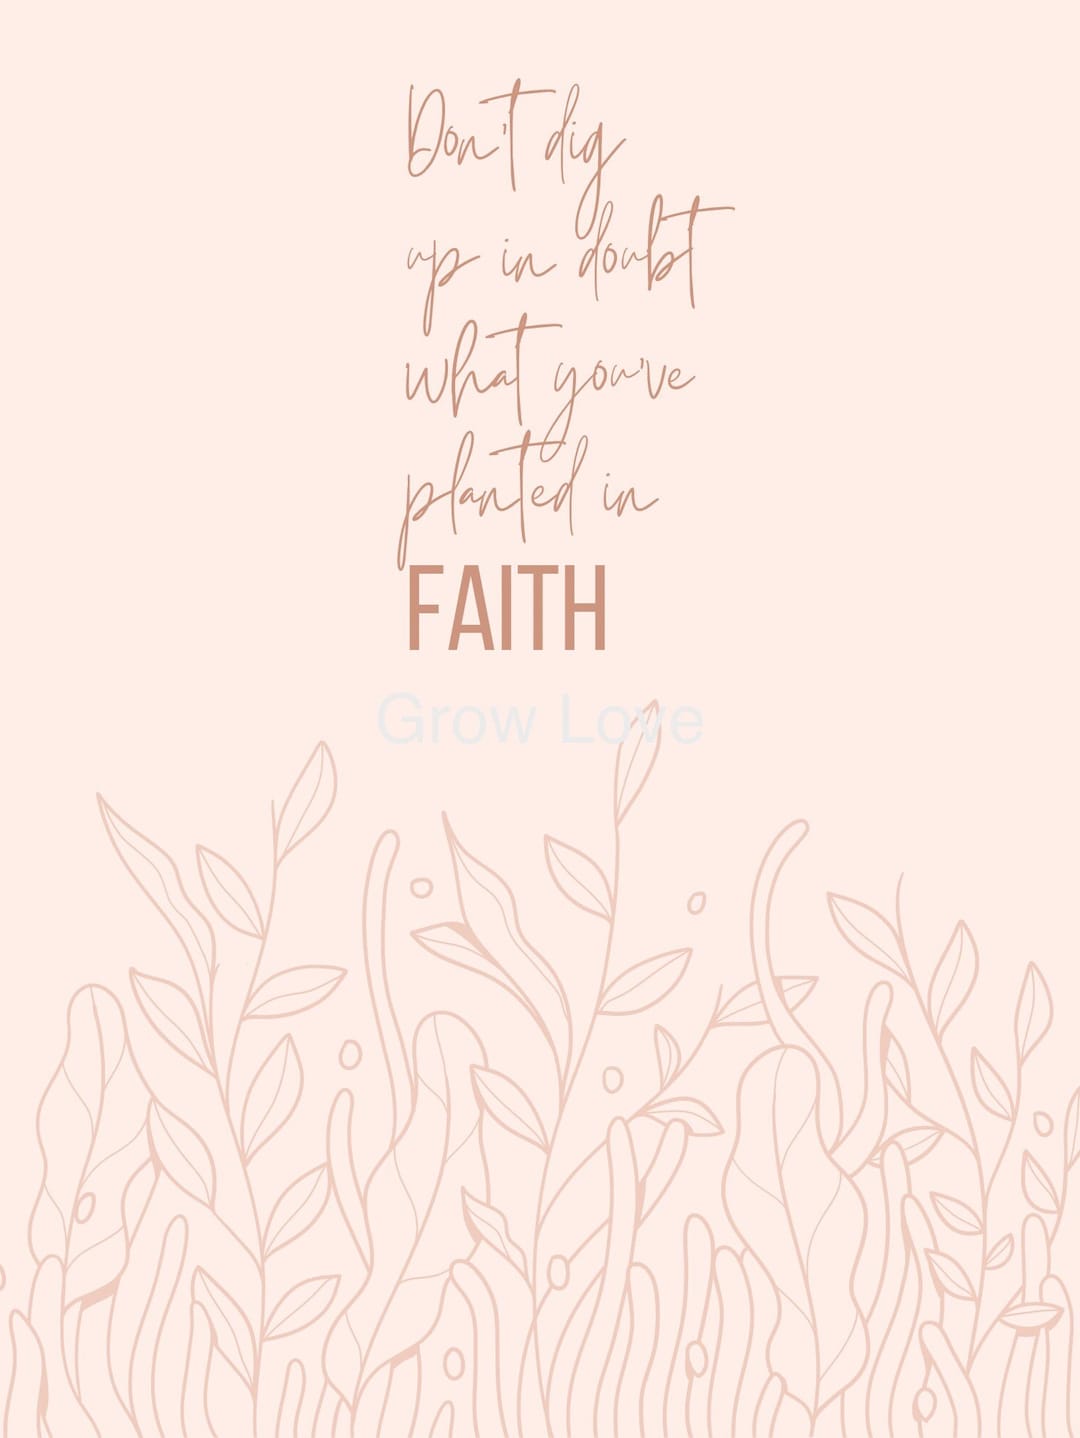 Don't dig
up in doubt
what you've
planted in
FAITH
Grow Love